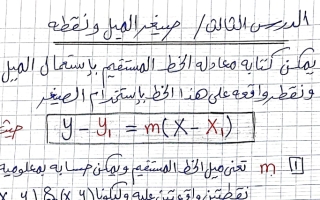 الدرس الثالث/ صيغة الميل ونقطة
يمكن كتابة معادلة الخط المستقيم بإستعمال الميل
ونقطة واقعة على هذا الخط بإستخدام الصيغة
y - y₁ = m(x - x₁) حيث
1 m تعني ميل الخط المستقيم ويمكن حسابه بمعلومية
نقطتين واقعتين عليه ولتكونا